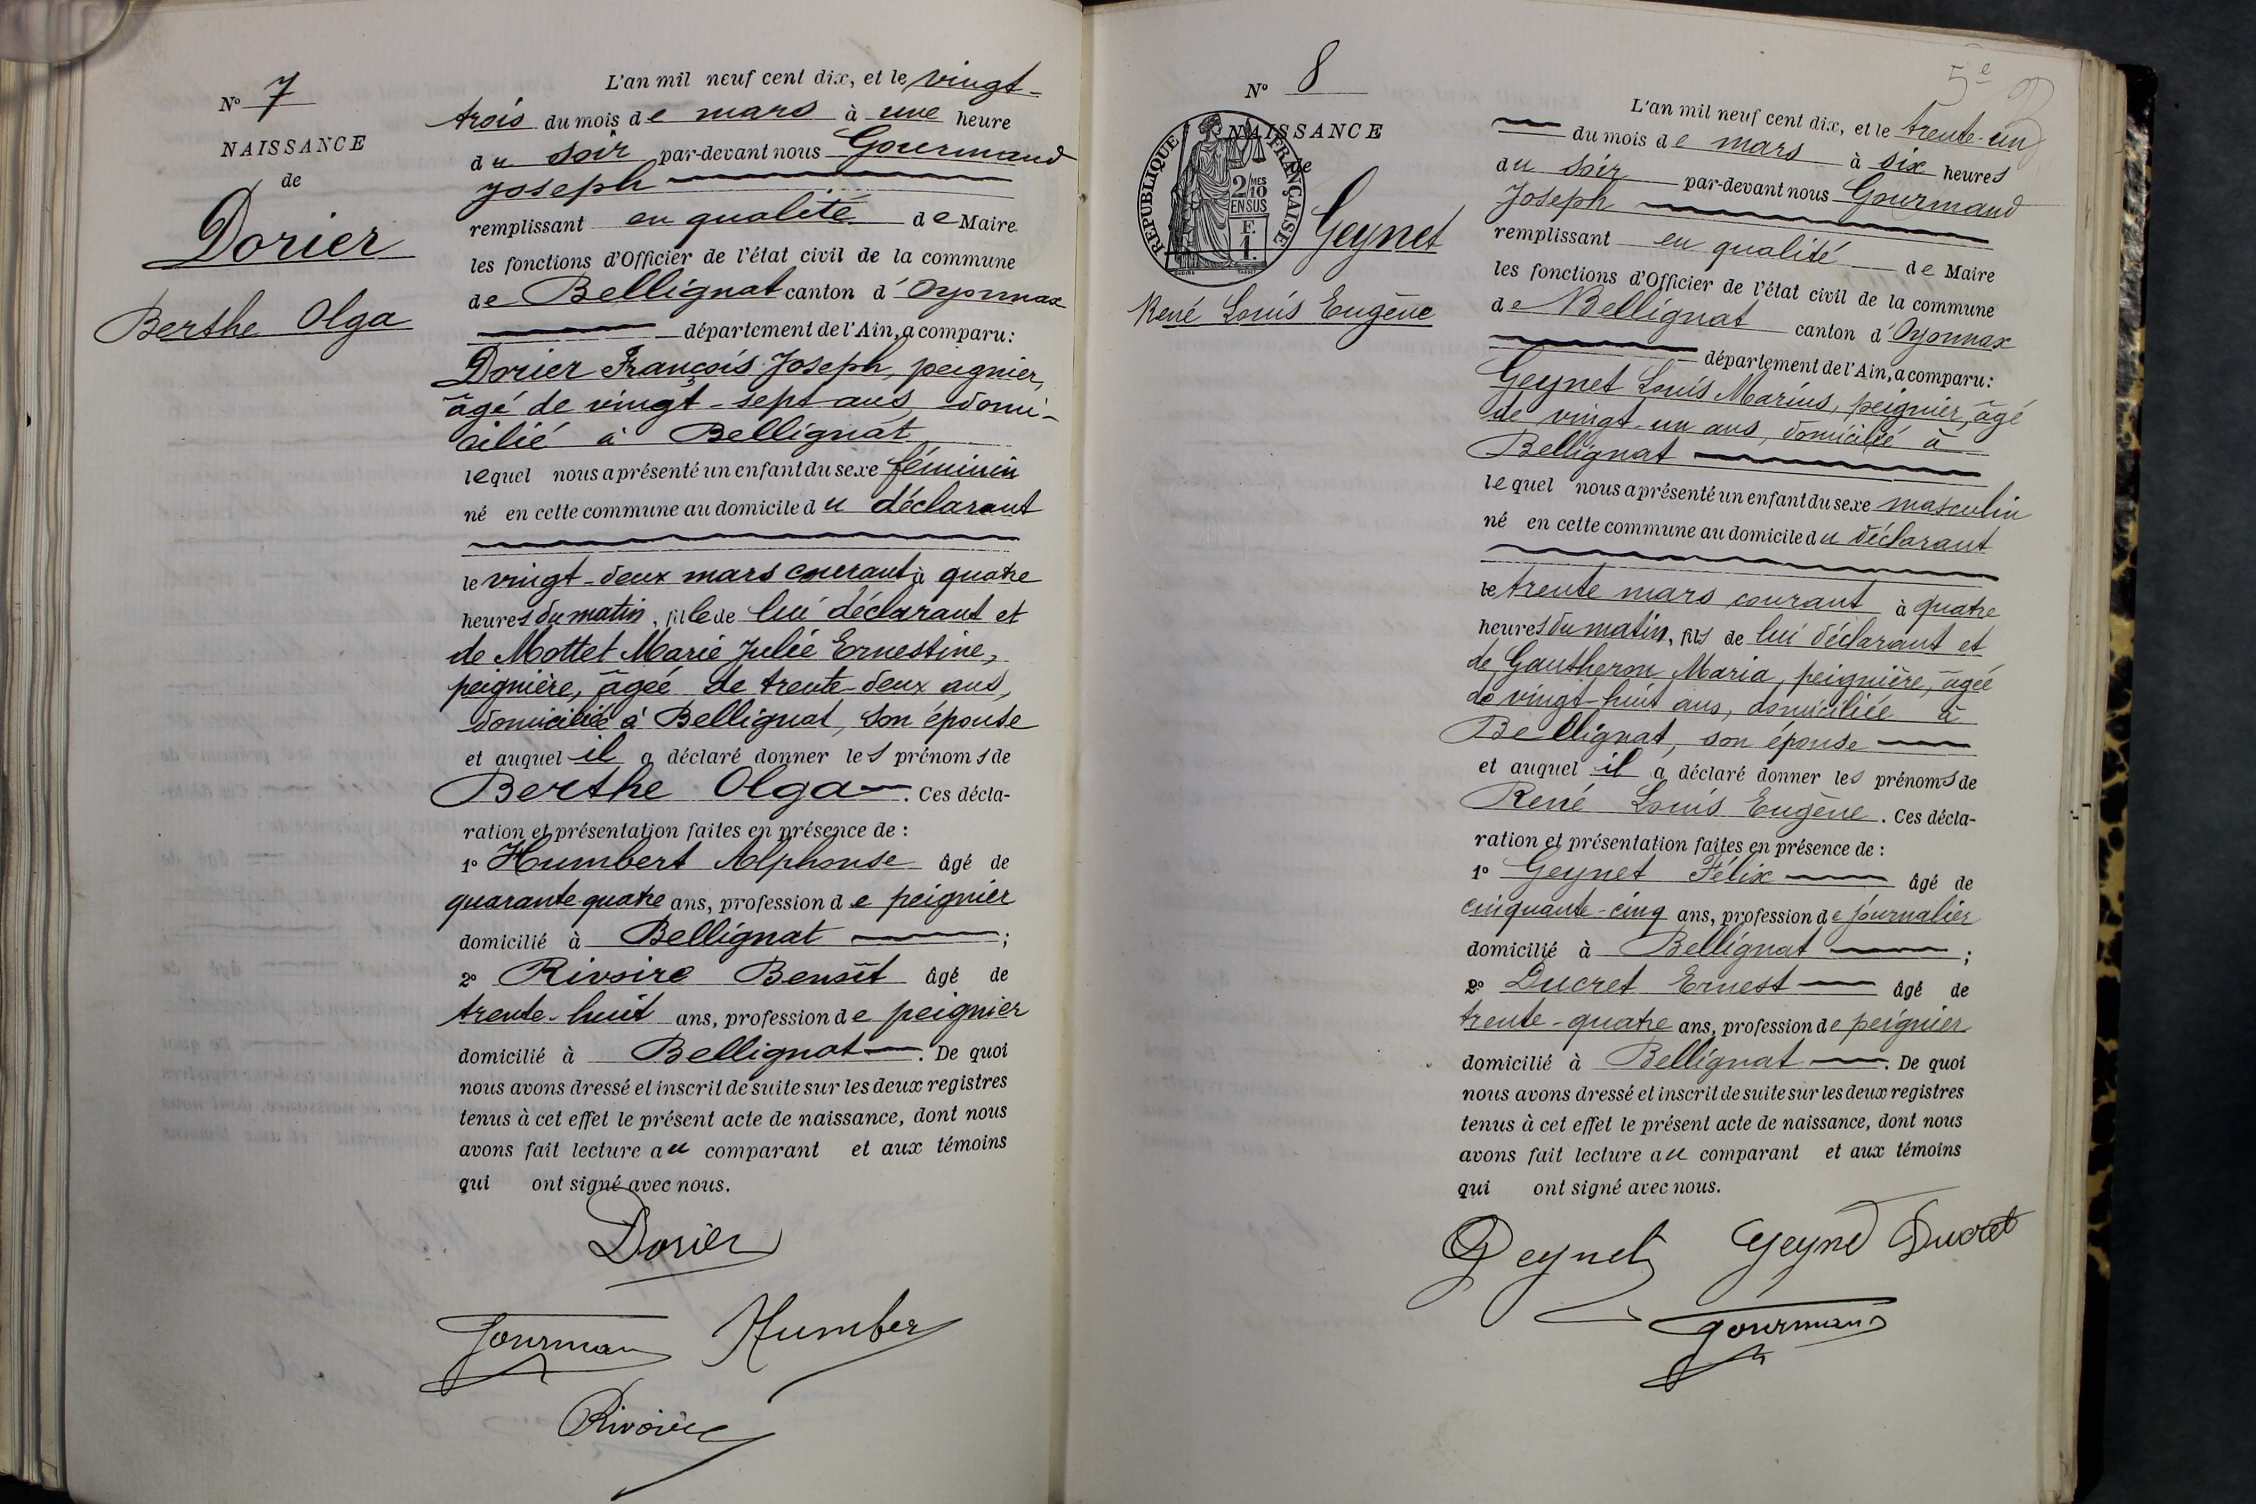 N° 7
NAISSANCE
de
Dorier
Berthe Olga
L'an mil neuf cent dix, et le vingt-
trois du mois de mars à une heure
du soir par-devant nous Gourmand
Joseph
remplissant en qualité de Maire
les fonctions d'Officier de l'état civil de la commune
de Bellignat canton d'Oyonnax
département de l'Ain, a comparu:
Dorier François Joseph, peignier,
âgé de vingt-sept ans, domi-
cilié à Bellignat
lequel nous a présenté un enfant du sexe féminin
né en cette commune au domicile du déclarant
le vingt-deux mars courant à quatre
heures du matin, fille de lui déclarant et
de Mottet Marie Julie Ernestine,
peignière, âgée de trente-deux ans,
domiciliée à Bellignat, son épouse
et auquel il a déclaré donner les prénoms de
Berthe Olga. Ces décla-
ration et présentation faites en présence de :
1° Humbert Alphonse âgé de
quarante-quatre ans, profession de peignier
domicilié à Bellignat ;
2° Rivoire Benoît âgé de
trente-huit ans, profession de peignier
domicilié à Bellignat. De quoi
nous avons dressé et inscrit de suite sur les deux registres
tenus à cet effet le présent acte de naissance, dont nous
avons fait lecture au comparant et aux témoins
qui ont signé avec nous.
Dorier
Gourman Humber
Rivoire
5e
N° 8
NAISSANCE
de
RÉPUBLIQUE FRANÇAISE
2/10MES
EN SUS
F.
1.
Geynet
René Louis Eugène
L'an mil neuf cent dix, et le trente-un
du mois de mars à six heures
du soir par-devant nous Gourmand
Joseph
remplissant en qualité de Maire
les fonctions d'Officier de l'état civil de la commune
de Bellignat canton d'Oyonnax
département de l'Ain, a comparu:
Geynet Louis Marius, peignier, âgé
de vingt-un ans, domicilié à
Bellignat
lequel nous a présenté un enfant du sexe masculin
né en cette commune au domicile du déclarant
le trente mars courant à quatre
heures du matin, fils de lui déclarant et
de Gautheron Maria, peignière, âgée
de vingt-huit ans, domiciliée à
Bellignat, son épouse
et auquel il a déclaré donner les prénoms de
René Louis Eugène. Ces décla-
ration et présentation faites en présence de :
1° Geynet Félix âgé de
cinquante-cinq ans, profession de journalier
domicilié à Bellignat ;
2° Ducret Ernest âgé de
trente-quatre ans, profession de peignier
domicilié à Bellignat. De quoi
nous avons dressé et inscrit de suite sur les deux registres
tenus à cet effet le présent acte de naissance, dont nous
avons fait lecture au comparant et aux témoins
qui ont signé avec nous.
Geynet Geynet Ducret
Gourmand